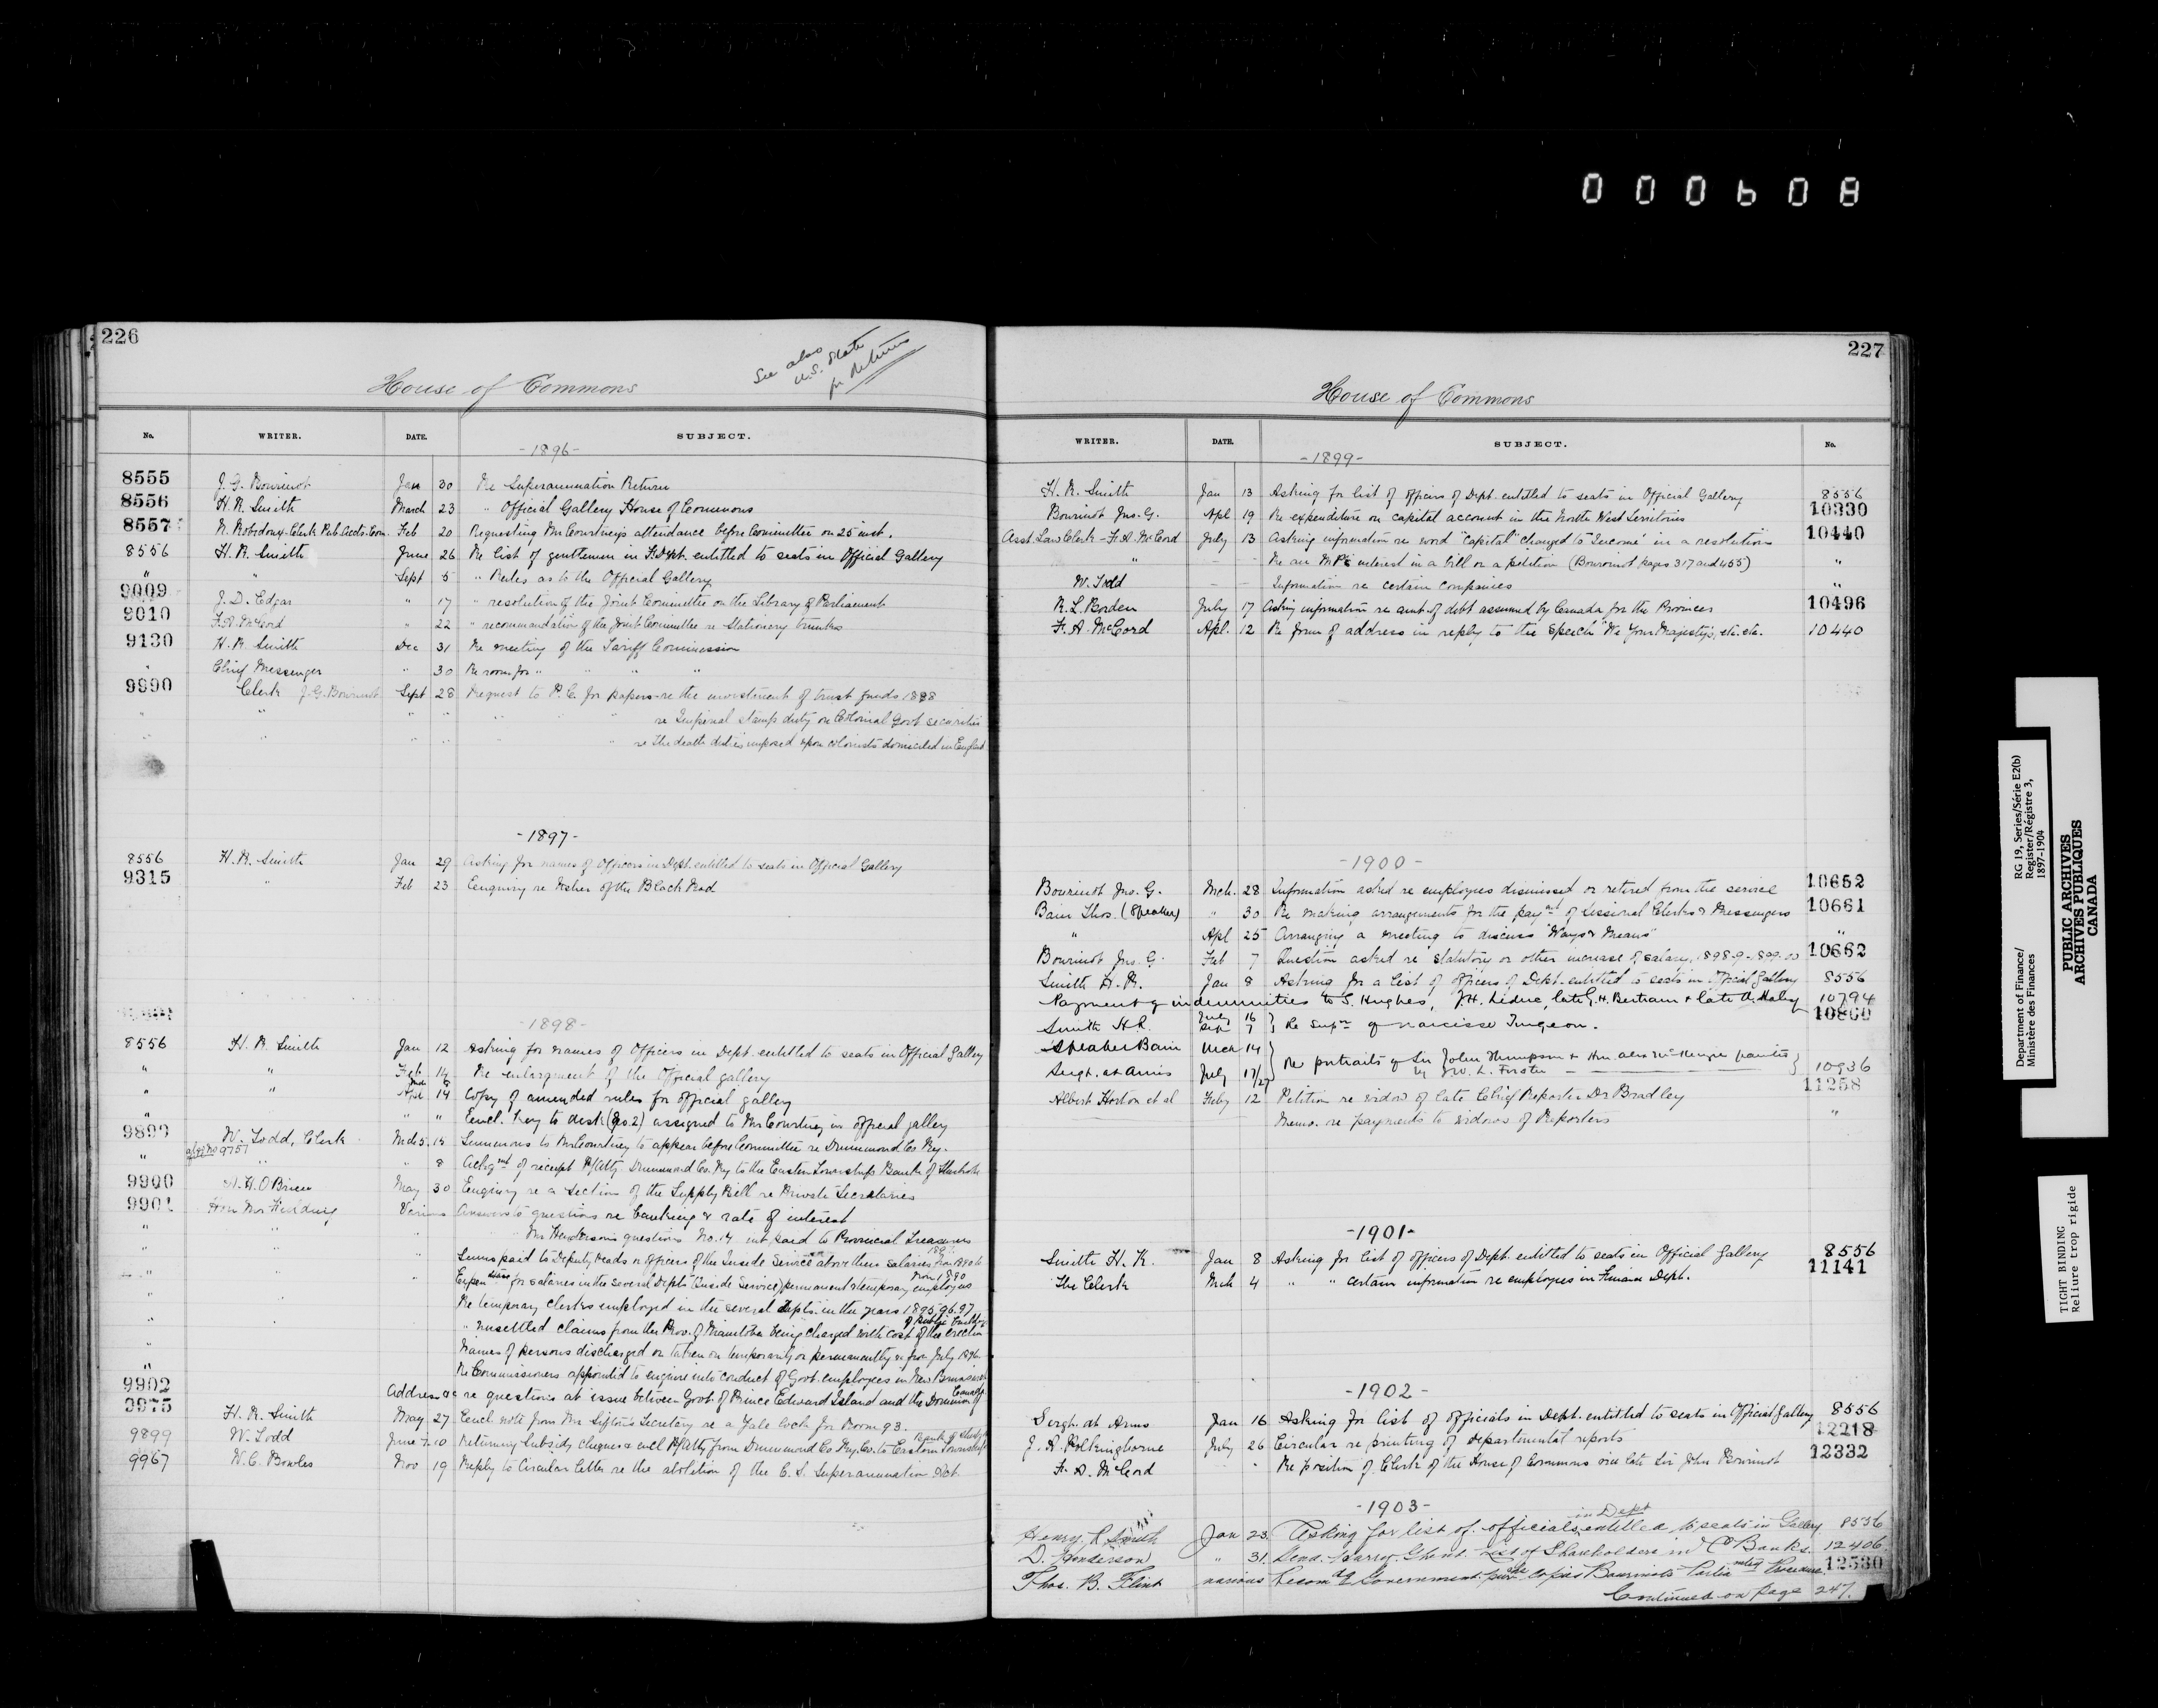 000608
226
See also
U.S. State
for Returns
House of Commons
No. WRITER. DATE. SUBJECT.
-1896-
8555 J. G. Bourinot Jan 30 Re Superannuation Return
8556 H. R. Smith March 23 " Official Gallery House of Commons
8557 Clerk Pub. Accts. Com. Feb 20 Requesting Mr Courtney's attendance before Committee on 25 inst.
8556 H. R. Smith June 26 Re list of gentlemen in F. Dept. entitled to seats in Official Gallery
" " Sept 5 " Rules as to the Official Gallery
9009 J. D. Edgar " 17 " resolution of the Joint Committee on the Library of Parliament
9010 F. A. McCord " 22 " recommendation of the Joint Committee re Stationery trunks
9130 H. R. Smith Dec 31 Re meeting of the Tariff Commission
" Chief Messenger " 30 Re room for " " "
9890 Clerk J. G. Bourinot Sept 28 Request to P. C. for papers re the investment of trust funds 1888
" " " " " " re Imperial stamp duty on Colonial Govt securities
" " " " " " re the death duties imposed upon colonists domiciled in England
-1897-
8556 H. R. Smith Jan 29 Asking for names of Officers in Dept. entitled to seats in Official Gallery
9315 " Feb 23 Enquiry re Usher of the Black Rod
-1898-
8556 H. R. Smith Jan 12 Asking for names of Officers in Dept. entitled to seats in Official Gallery
" " Feb 14 Re enlargement of the Official gallery
" " Apl 14 Copy of amended rules for official gallery
" " " Encl. key to desk (No. 2) assigned to Mr Courtney in official gallery
9899 W. Todd, Clerk Mch 5. 15 Summons to Mr Courtney to appear before Committee re Drummond Co. Ry.
" also No 9757 " " 8 Ackgmt of receipt P/Atty. Drummond Co. Ry to the Eastern Townships Bank of Sherbrooke
9900 O'Brien May 30 Enquiry re a Section of the Supply Bill re Private Secretaries
9901 Hon Mr Fielding Various Answers to questions re banking & rate of interest
" " " Mr Henderson's questions No. 14 int. paid to Provincial Treasurers
Sums paid to Deputy Heads & officers of the Inside Service above their salaries from 1890 to 189
Expenditure for salaries in the several Depts (Inside Service) permanent & temporary employees from 1890
Re temporary clerks employed in the several Depts. in the years 1895, 96. 97
" unsettled claims from the Prov. of Manitoba being charged with cost of the erection of public buildings
Names of persons discharged or taken on temporarily or permanently & from July 1896
" Re Commissioners appointed to enquire into conduct of Govt. employees in New Brunswick
9902 Address &c re questions at issue between Govt. of Prince Edward Island and the Dominion of Canada
9975 H. R. Smith May 27 Encl. note from Mr Sifton's Secretary re a Yale lock for Room 93.
9899 W. Todd June 7.10 Returning Subsidy cheques & encl P/Atty from Drummond Co Ry. Co. to Eastern Townships Bank of Sherbrooke
9967 W. C. Bowles Nov 19 Reply to Circular letter re the abolition of the C. S. Superannuation Act.
227
House of Commons
WRITER. DATE. SUBJECT. No.
-1899-
H. R. Smith Jan 13 Asking for list of officers of Dept. entitled to seats in Official Gallery 8556
Bourinot Jno. G. Apl 19 Re expenditure on capital account in the North West Territories 10330
Asst. Law Clerk - F. A. McCord July 13 Asking information re word "Capital" changed to 'Income' in a resolution 10440
" - - Re an M.P's interest in a bill or a petition (Bourinot pages 317 and 455) "
W. Todd - - Information re certain companies "
R. L. Borden July 17 Asking information re amt. of debt assumed by Canada for the Provinces 10496
F. A. McCord Apl. 12 Re form of address in reply to the Speech "We Your Majesty's, etc. etc. 10440
-1900-
Bourinot Jno. G. Mch. 28 Information asked re employees dismissed or retired from the service 10652
Bain Thos. (Speaker) " 30 Re making arrangements for the paymt of Sessional Clerks & Messengers 10661
" Apl 25 Arranging a meeting to discuss "Ways & Means" "
Bourinot Jno. G. Feb 7 Question asked re statutory or other increase of salary, 1898-9-1899-00 10662
Smith H. R. Jan 8 Asking for a list of officers of Dept. entitled to seats in Official Gallery 8556
Payment of indemnities to S. Hughes, J. H. Leduc, late G. H. Bertram & late 10794
Smith H. R. July 16 Sept 7 } Re Supn of Narcisse Turgeon. 10860
Speaker Bain Mch 14 } Re portraits of Sir John Thompson & Hon. Alex McKenzie painted }
Sergt. at Arms July 17/27 by J. W. L. Forster 10936
Albert Horton et al Feby 12 Petition re widow of late Chief Reporter Dr Bradley 11258
Memo. re payments to widows of Reporters "
-1901-
Smith H. R. Jan 8 Asking for list of officers of Dept. entitled to seats in Official Gallery 8556
The Clerk Mch 4 " " certain information re employees in Finance Dept. 11141
-1902-
Sergt. at Arms Jan 16 Asking for list of officials in Dept. entitled to seats in Official Gallery 8556
J. A. Polkinghorne July 26 Circular re printing of departmental reports 12218
F. A. McCord " Re position of Clerk of the House of Commons vice late Sir John Bourinot 12332
-1903-
Henry R Smith Jan 23. Asking for list of officials in Dept entitled to seats in Gallery 8556
D. Henderson " 31. List of Shareholders in Banks. 12406.
Thos. B. Flint various Government copies Bourinot's Procedure 12530
Continued on page 247.
Department of Finance/
Ministère des Finances
RG 19, Series/Série E2(b)
Register/Régistre 3,
1897-1904
PUBLIC ARCHIVES
ARCHIVES PUBLIQUES
CANADA
TIGHT BINDING
Reliure trop rigide